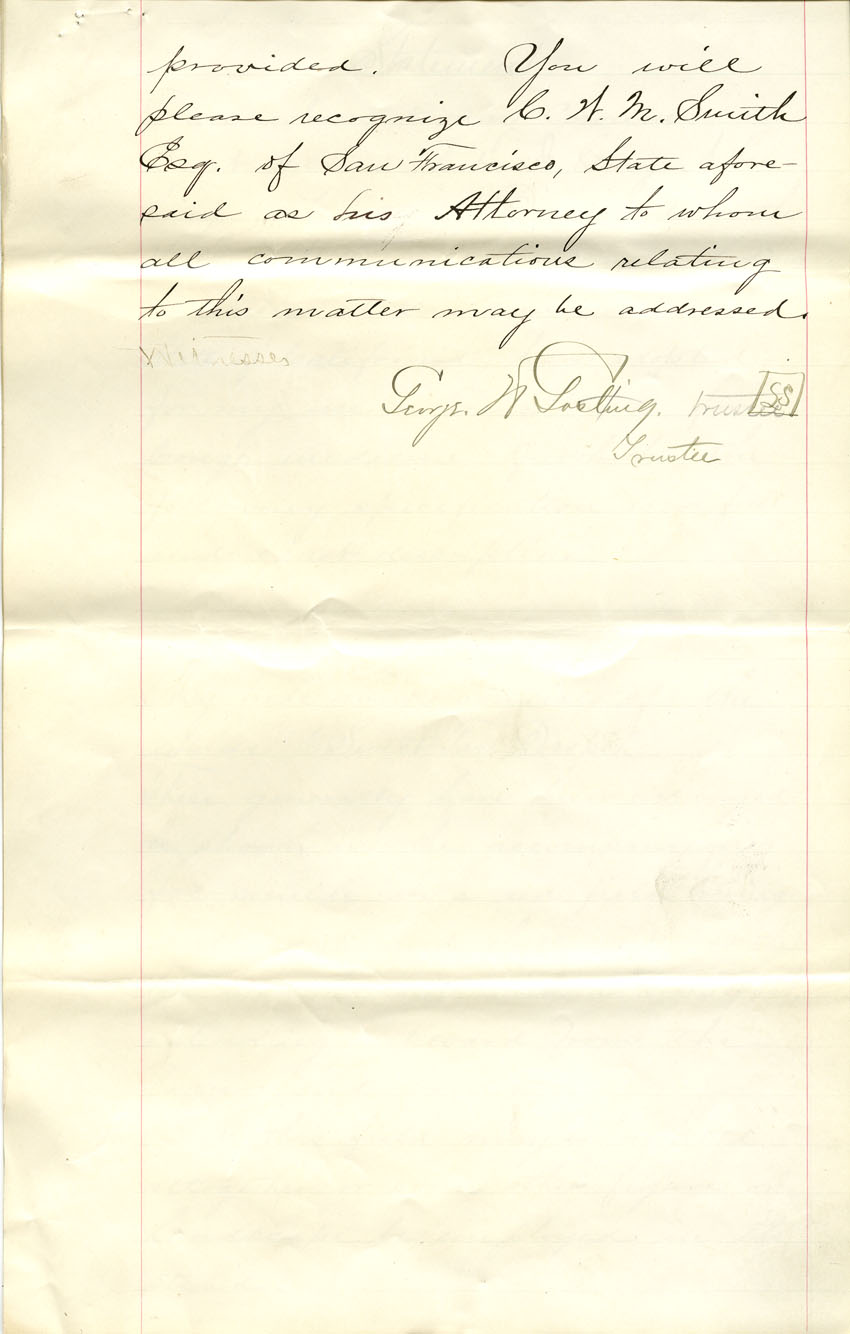 provided. You will
please recognize C. W. M. Smith
Esq. of San Francisco, State afore-
said as his Attorney to whom
all communications relating
to this matter may be addressed.
Witnesses
George. W trustee
Trustee